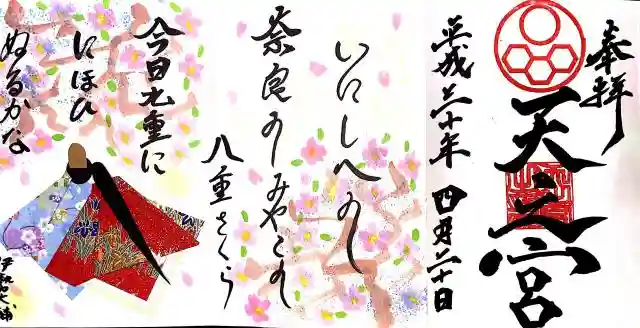 奉拝
天之宮
平成三十年四月二十日
いにしへの
奈良のみやこの
八重さくら
今日九重に
にほひ
ぬるかな
伊勢大輔